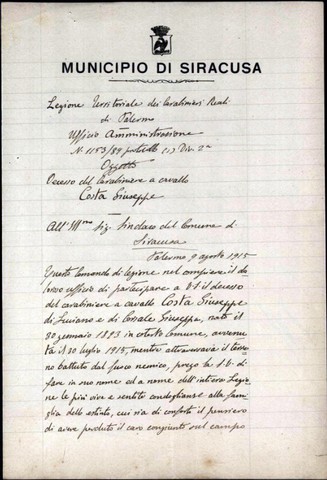 MUNICIPIO DI SIRACUSA
Legione Territoriale dei Carabinieri Reali
di Palermo
Ufficio Amministrazione
N. 1153/89 protollo (1) Div. 2a
Oggetto
Decesso del Carabiniere a cavallo
Costa Giuseppe
All'Ill.mo Sig. Sindaco del Comune di
Siracusa
Palermo 9 agosto 1915
Questo Comando di legione nel compiere il do
loroso ufficio di partecipare a V.S. il decesso
del carabiniere a cavallo Costa Giuseppe
di Luciano e di Corsale Giuseppa, nato il
30 gennaio 1893 in codesto Comune, avvenu
ta il 30 luglio 1915, mentre attraversava il terre
no battuto dal fuoco nemico, prego la S.V. di
fare in suo nome ed a nome dell'intiera Legio
ne le più vive e sentite condoglianze alla fami
glia dello estinto, cui sia di conforto il pensiero
di avere perduto il caro congiunto sul campo